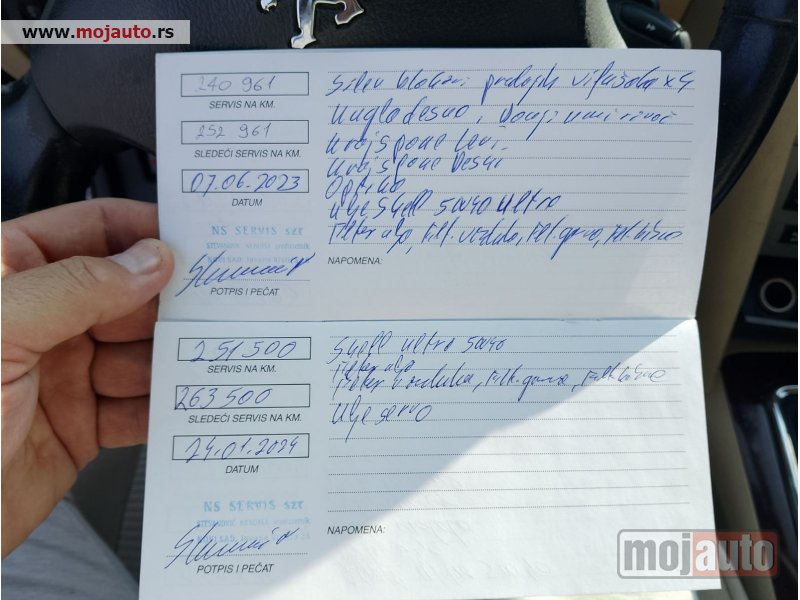 www.mojauto.rs
240 961
SERVIS NA KM.
252 961
SLEDEĆI SERVIS NA KM.
07.06.2023
DATUM
NS SERVIS szr
POTPIS I PEČAT
Silen blokovi x4
Kugla desno,
Kraj spone levi.
Kraj spone Desni
Optika
Ulje Shell 5W40 Ultra
Filter ulja, Filt. vazduha, Filt. goriva, Filt. kabine
NAPOMENA:
251 500
SERVIS NA KM.
263 500
SLEDEĆI SERVIS NA KM.
24.01.2024
DATUM
NS SERVIS szr
POTPIS I PEČAT
Shell ultra 5W40
Filter ulja
Filter vazduha, Filt. goriva, Filt. kabine
Ulje servo
NAPOMENA:
mojauto